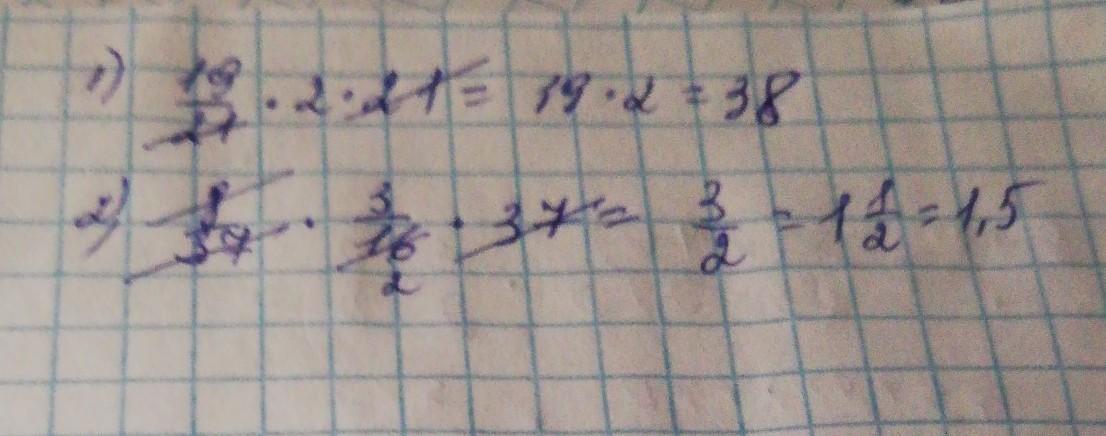 1) 19/21 · 2 · 21 = 19 · 2 = 38
2) 8/37 · 3/16 · 37 = 3/2 = 1 1/2 = 1,5
2